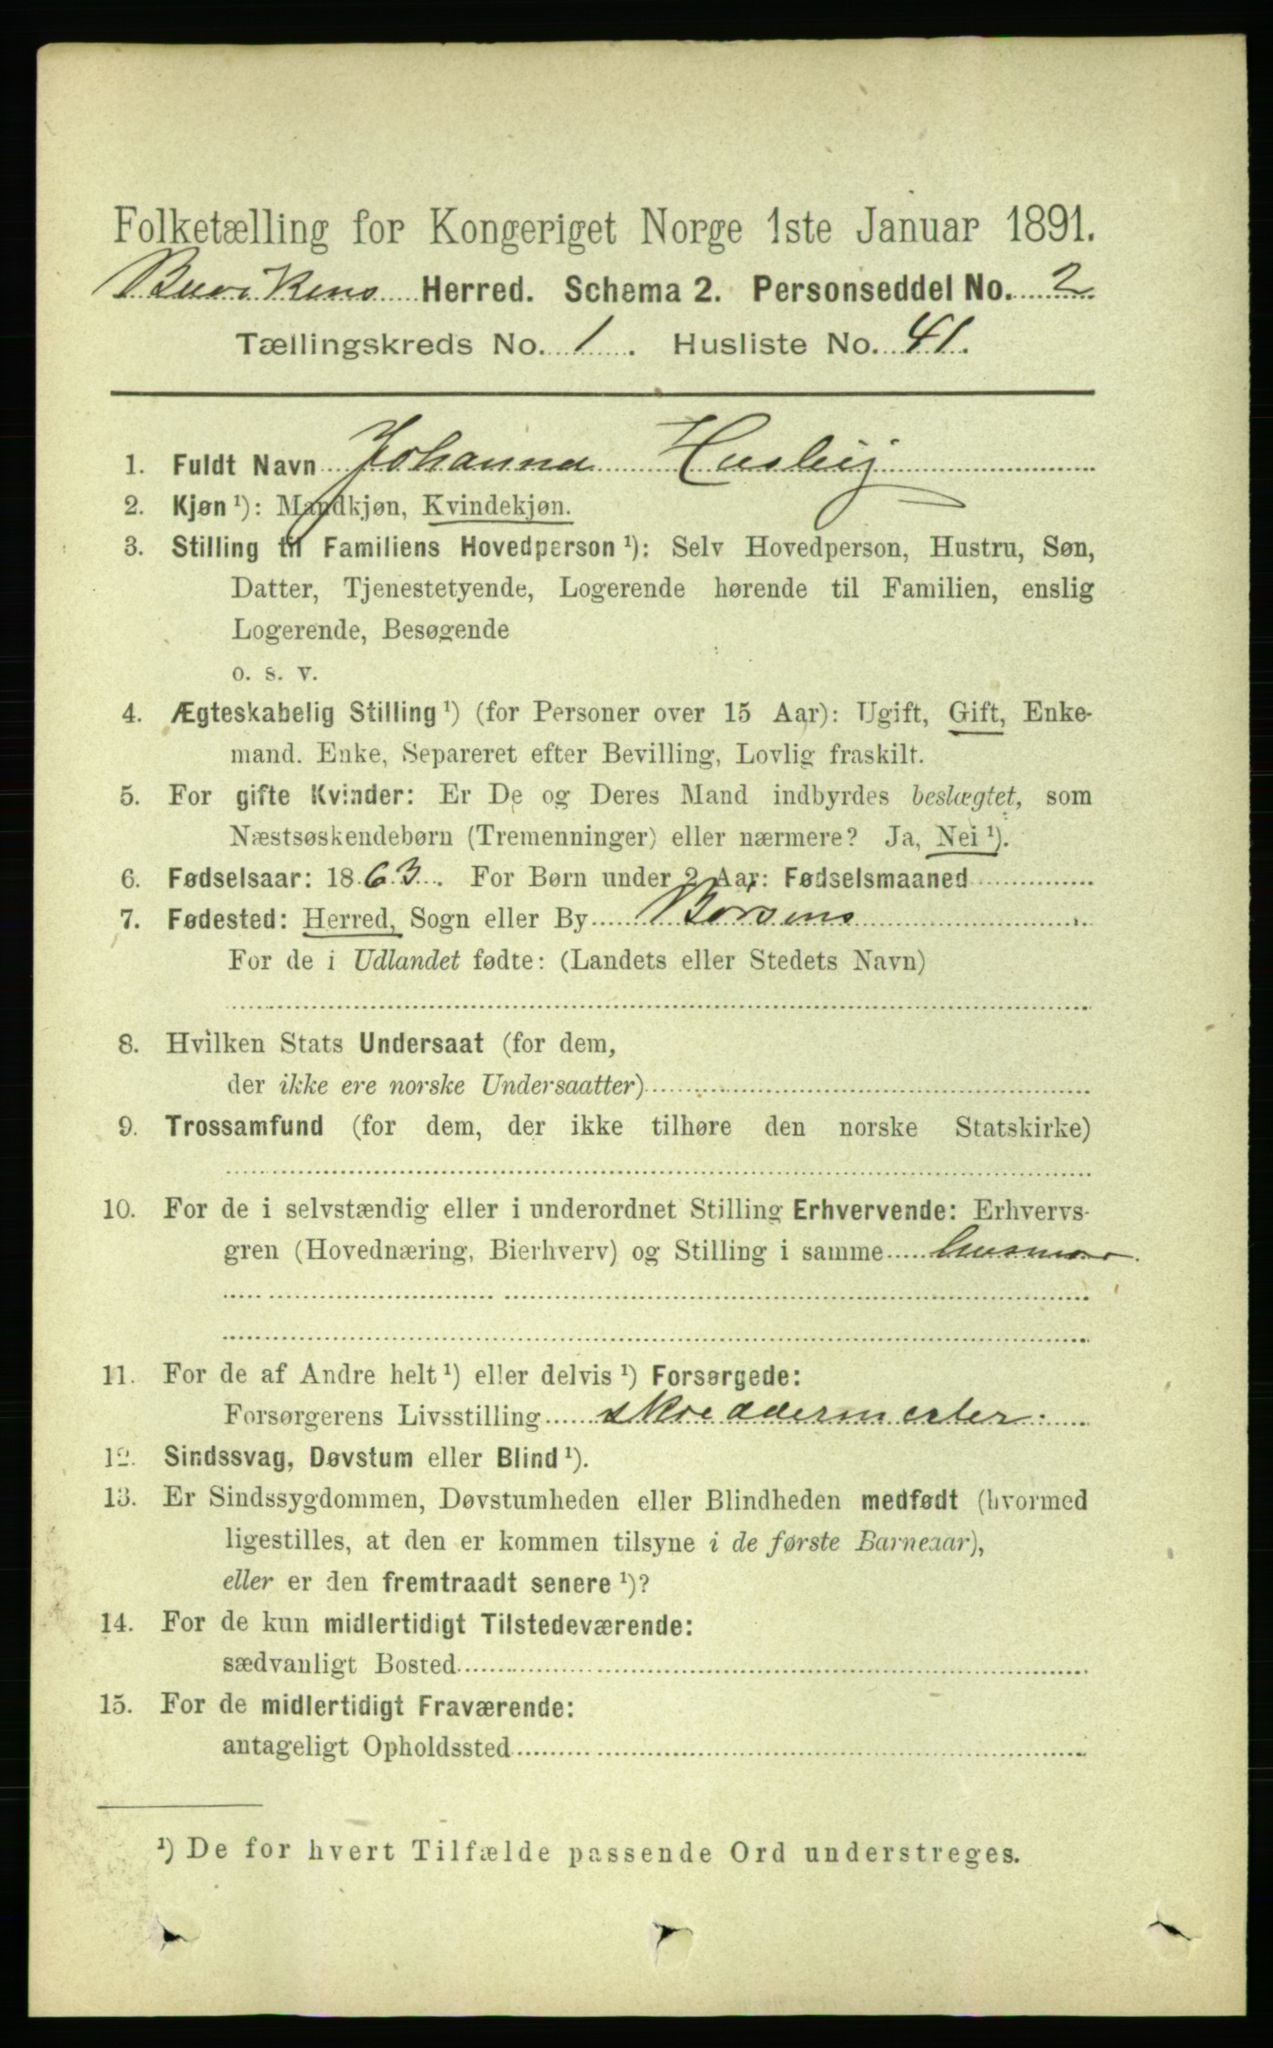 Folketælling for Kongeriget Norge 1ste Januar 1891.
Buvikens Herred. Schema 2. Personseddel No. 2
Tællingskreds No. 1. Husliste No. 41.
1. Fuldt Navn Johanna Husby
2. Kjøn ¹): Mandkjøn, Kvindekjøn.
3. Stilling til Familiens Hovedperson ¹): Selv Hovedperson, Hustru, Søn,
Datter, Tjenestetyende, Logerende hørende til Familien, enslig
Logerende, Besøgende
o. s. v.
4. Ægteskabelig Stilling ¹) (for Personer over 15 Aar): Ugift, Gift, Enke-
mand. Enke, Separeret efter Bevilling, Lovlig fraskilt.
5. For gifte Kvinder: Er De og Deres Mand indbyrdes beslægtet, som
Næstsøskendebørn (Tremenninger) eller nærmere? Ja, Nei ¹).
6. Fødselsaar: 1863. For Børn under 2 Aar: Fødselsmaaned
7. Fødested: Herred, Sogn eller By Børsens
For de i Udlandet fødte: (Landets eller Stedets Navn)
8. Hvilken Stats Undersaat (for dem,
der ikke ere norske Undersaatter)
9. Trossamfund (for dem, der ikke tilhøre den norske Statskirke)
10. For de i selvstændig eller i underordnet Stilling Erhvervende: Erhvervs-
gren (Hovednæring, Bierhverv) og Stilling i samme husmor.
11. For de af Andre helt ¹) eller delvis ¹) Forsørgede:
Forsørgerens Livsstilling skræddermester.
12. Sindssvag, Døvstum eller Blind ¹).
13. Er Sindssygdommen, Døvstumheden eller Blindheden medfødt (hvormed
ligestilles, at den er kommen tilsyne i de første Barneaar),
eller er den fremtraadt senere ¹)?
14. For de kun midlertidigt Tilstedeværende:
sædvanligt Bosted
15. For de midlertidigt Fraværende:
antageligt Opholdssted
¹) De for hvert Tilfælde passende Ord understreges.